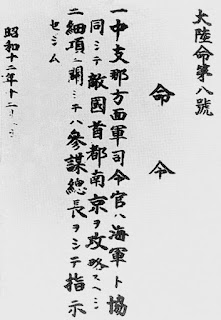 大陸命第八號
命令
一中支那方面軍司令官ハ海軍ト協
同シテ敵國首都南京ヲ攻略スヘシ
二細項ニ關シテハ參謀總長ヲシテ指示
セシム
昭和十二年十二月